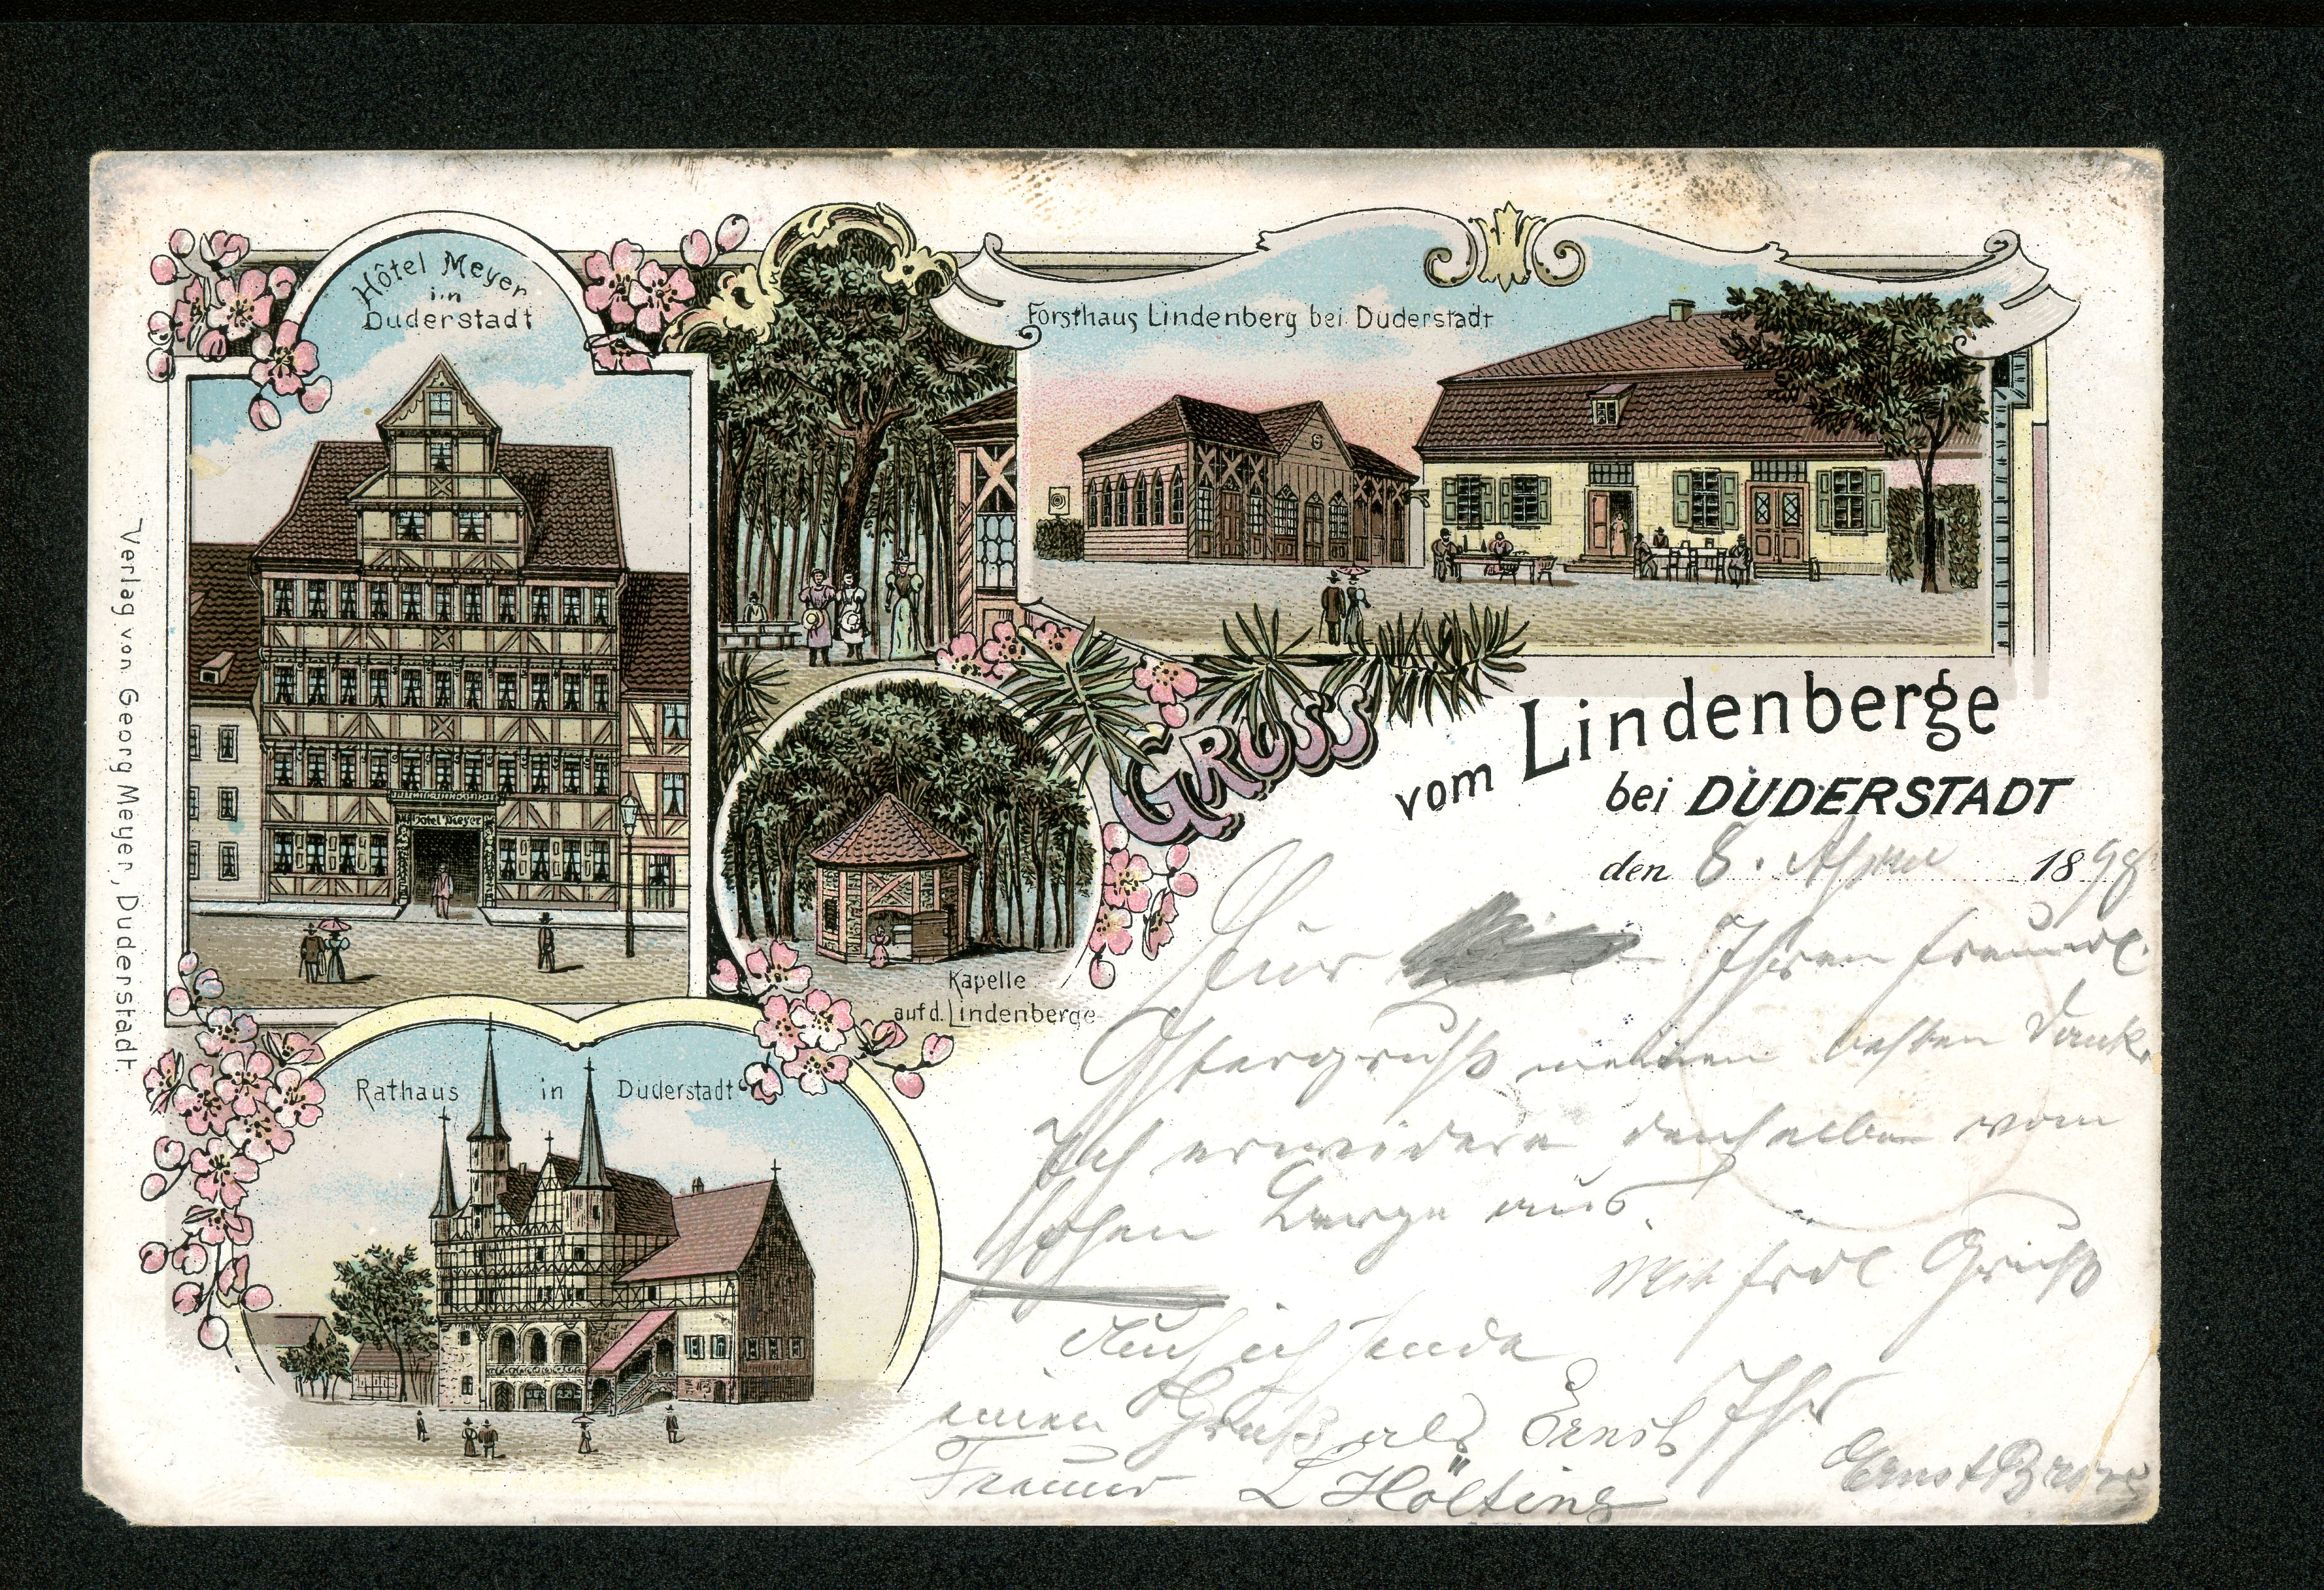 Hôtel Meyer
in
Duderstadt
Forsthaus Lindenberg bei Duderstadt
Hotel Meyer
Kapelle
auf d. Lindenberge
Rathaus in Duderstadt
Verlag von Georg Meyer, Duderstadt
GRUSS
vom Lindenberge
bei DUDERSTADT
den 8. April 1898
Für Ihren freundl.
Ostergruß meinen besten Dank.
Ich erwidere denselben vom
hohen Berge aus.
Mit frdl. Gruß
Auch ich sende
einen Gruß als Ernst Ihr
Freund L Hölting Ernst